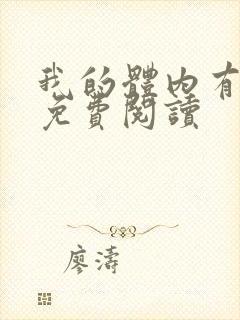 我的體內有
免費閱讀
廖濤